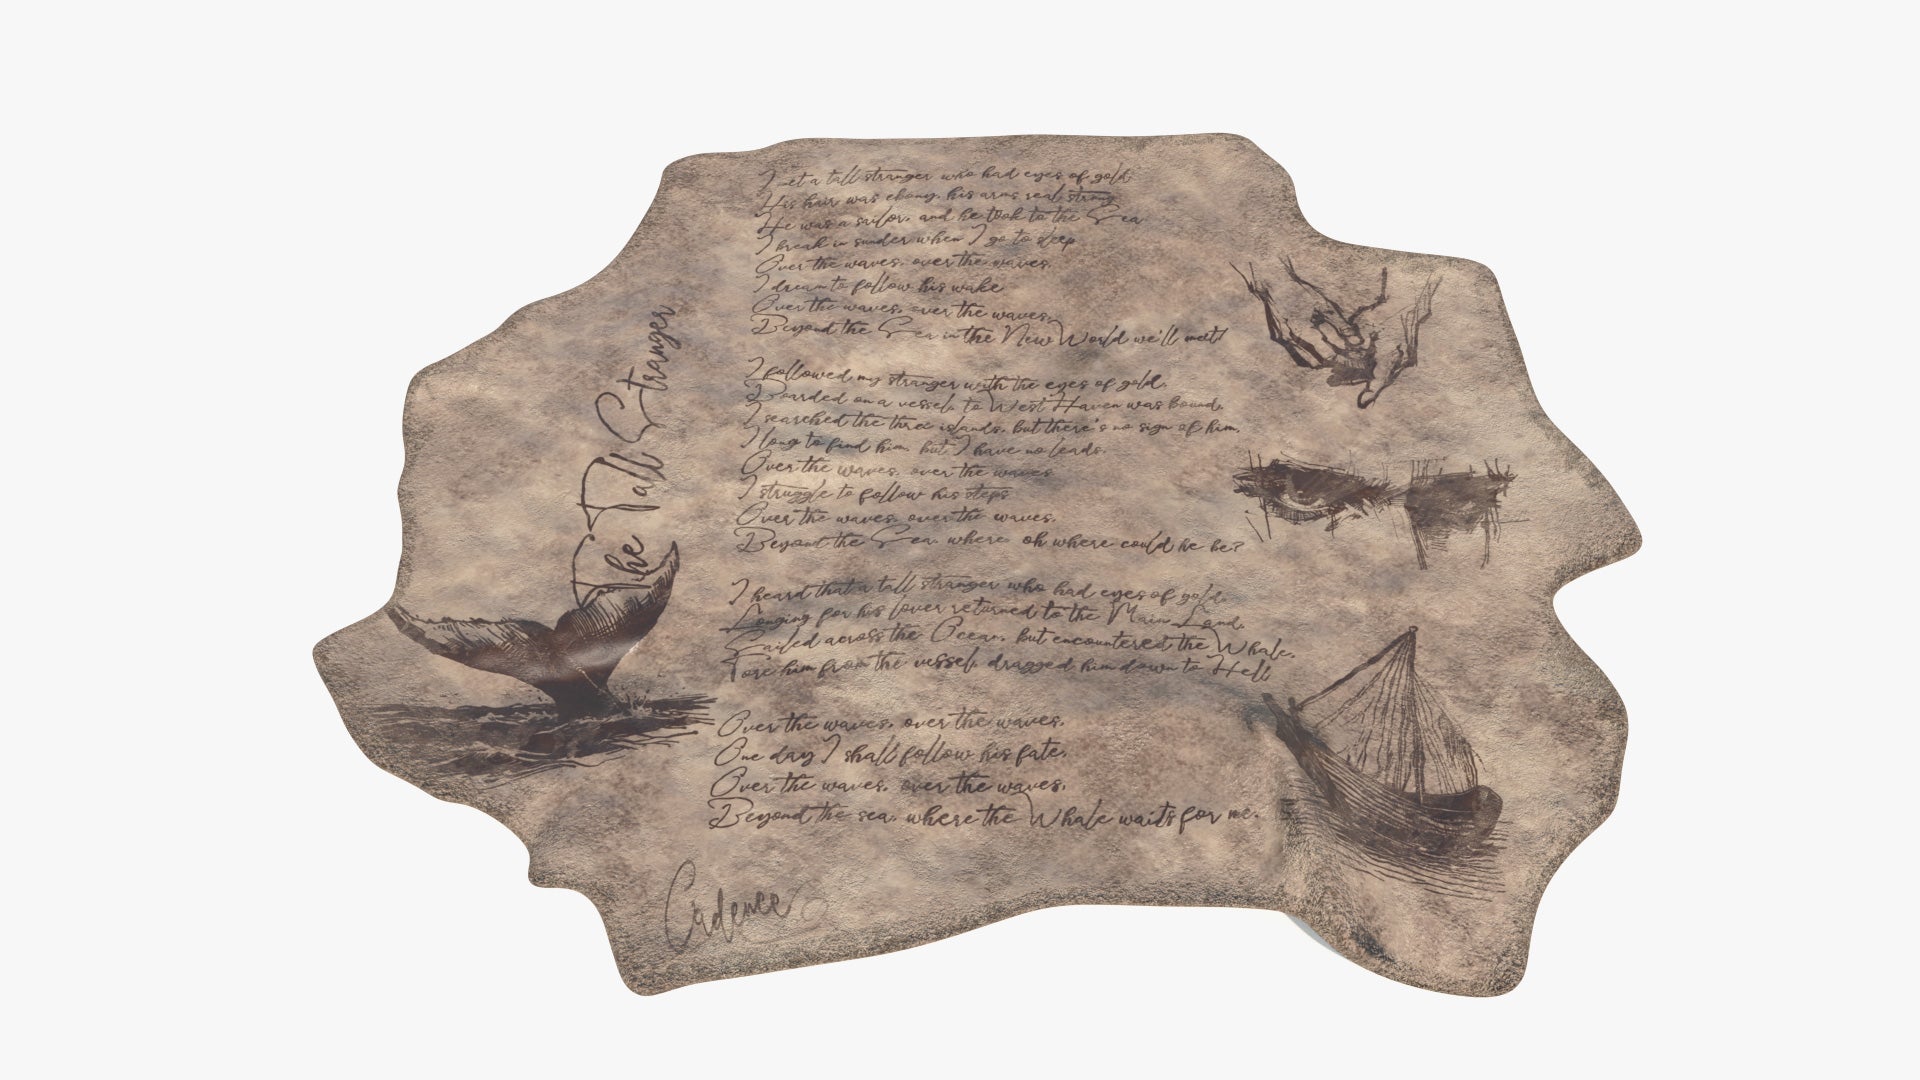 The Tall Stranger
I met a tall stranger who had eyes of gold.
His hair was ebony, his arms real strong.
He was a sailor, and he took to the Sea
I break in sunder when I go to sleep
Over the waves, over the waves,
I dream to follow his wake
Over the waves, over the waves,
Beyond the Sea in the New World we'll meet!
I followed my stranger with the eyes of gold,
Boarded on a vessel, to West Haven was Bound,
I searched the three islands, but there's no sign of him,
I long to find him, but I have no leads.
Over the waves, over the waves
I struggle to follow his steps
Over the waves, over the waves,
Beyond the Sea, where oh where could he be?
I heard that a tall stranger who had eyes of gold,
Longing for his lover returned to the Main Land,
Sailed across the Ocean, but encountered the Whale,
Tore him from the vessel, dragged him down to Hell
Over the waves, over the waves,
One day I shall follow his fate,
Over the waves, over the waves,
Beyond the sea, where the Whale waits for me.
Cadence